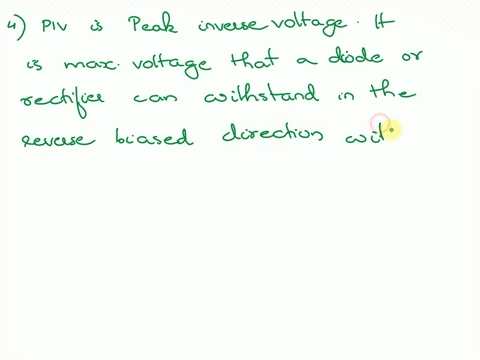 4) PIV is Peak inverse voltage. It
is max. voltage that a diode or
rectifier can withstand in the
reverse biased direction wit